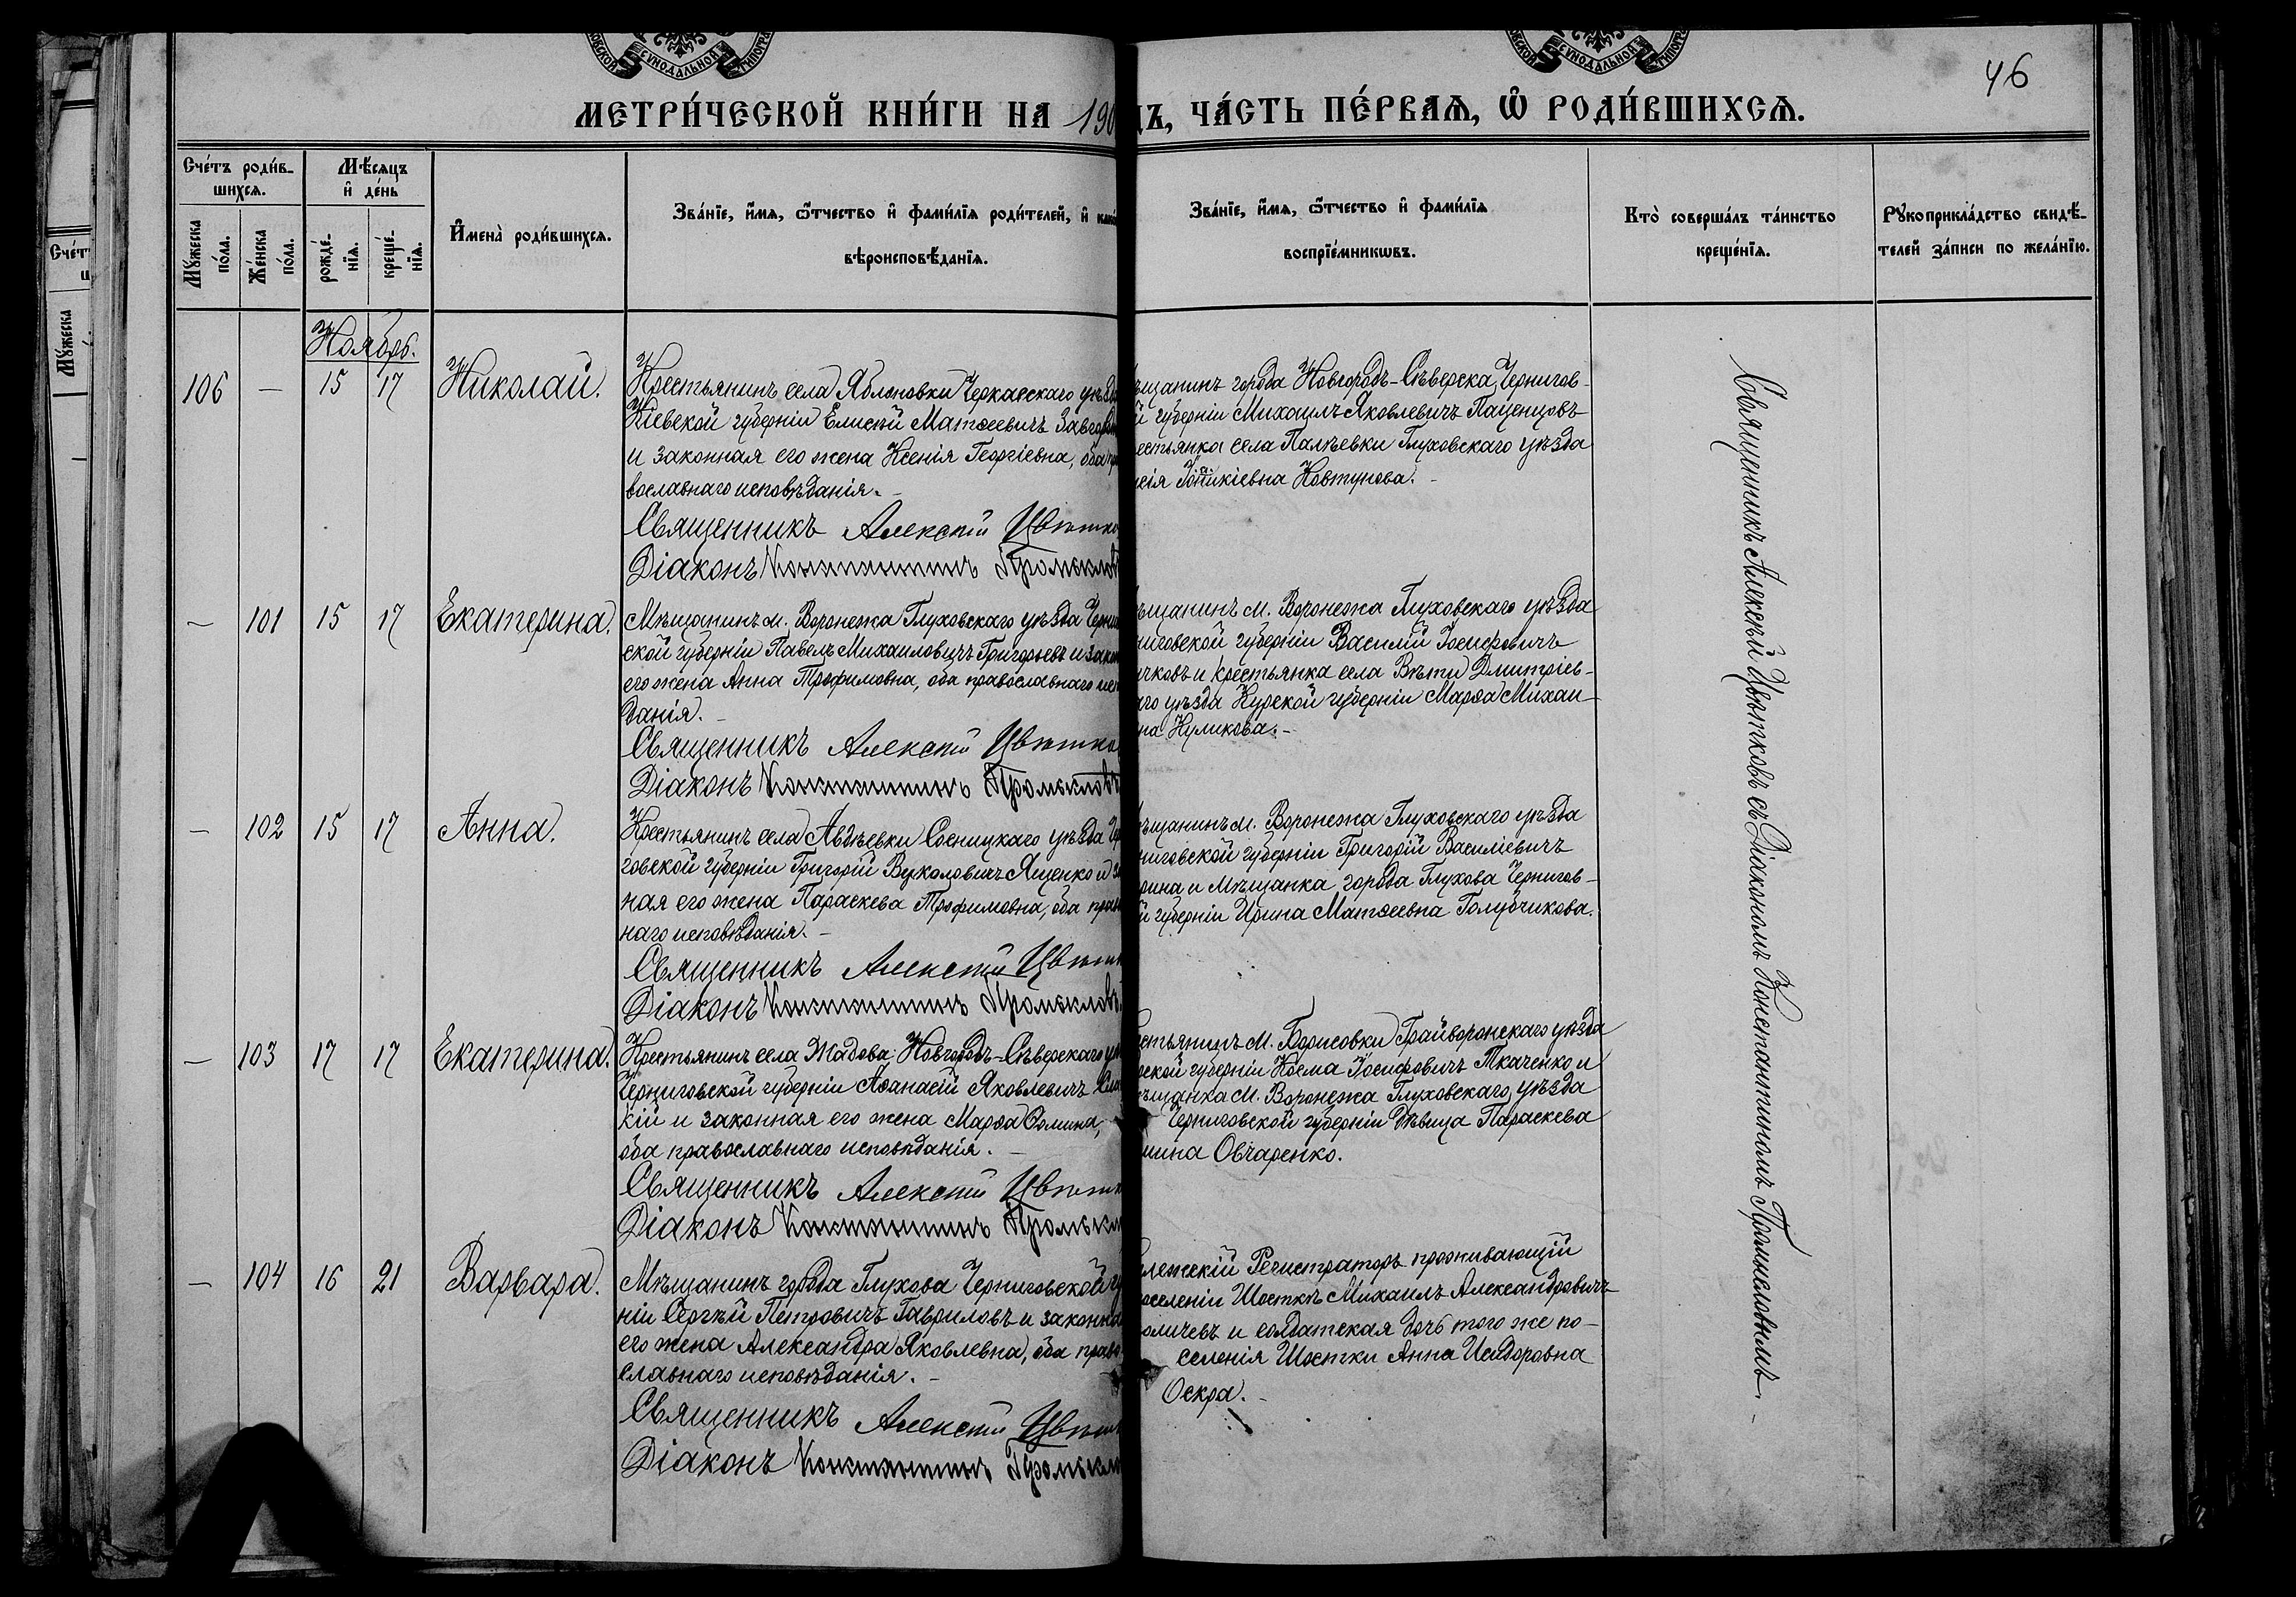 46
МЕТРИ́ЧЕСКОЙ КНИ́ГИ НА 190 ДЪ, ЧА́СТЬ ПЕ́РВАѦ, Ѿ РОДИ́ВШИХСѦ.
Счетъ родив-
шихся.
Мужеска
пола.
Женска
пола.
Мѣсяцъ
и день
рожде-
нія.
креще-
нія.
Имена родившихся.
Званіе, имя, отчество и фамилія родителей, и како
вѣроисповѣданія.
Званіе, имя, отчество и фамилія
воспріемниковъ.
Кто совершалъ таинство
крещенія.
Рукоприкладство свидѣ-
телей записи по желанію.
Ноябрь.
106 — 15 17 Николай.
Крестьянинъ села Яблоновки Черкасскаго уѣзда
Кіевской губерніи Елисей Матѳеевичъ
и законная его жена Ксенія Георгіевна, оба пра
вославнаго исповѣданія. –
Священникъ Алексѣй Цвѣтко
Діаконъ Константинъ Промыслов
ѣщанинъ города Новгородъ-Сѣверска, Чернигов-
й губерніи Михаилъ Яковлевичъ Паценцовъ
естьянка села Палѣевки Глуховскаго уѣзда
сія Іоаникіевна Ковтунова. –
— 101 15 17 Екатерина.
Мѣщанинъ м. Воронежа Глуховскаго уѣзда Черниг
ской губерніи Павелъ Михаиловичъ Григорьевъ и закон
его жена Анна Трофимовна, оба православнаго испо
данія. –
Священникъ Алексѣй Цвѣтко
Діаконъ Константинъ Промыслов
ѣщанинъ м. Воронежа Глуховскаго уѣзда
ниговской губерніи Василій Іосифовичъ
чковъ и крестьянка села Вѣти Дмитріев-
аго уѣзда Курской губерніи Марѳа Михаи-
на Куликова. –
— 102 15 17 Анна.
Крестьянинъ села Авдѣевки Сосницкаго уѣзда Чер
говской губерніи Григорій Вуколовичъ Ященко и за
ная его жена Параскева Трофимовна, оба прав
наго исповѣданія. –
Священникъ Алексѣй Цвѣтк
Діаконъ Константинъ Промыслов
ѣщанинъ м. Воронежа Глуховскаго уѣзда
ниговской губерніи Григорій Василіевичъ
рина и мѣщанка города Глухова Чернигов-
й губерніи Ирина Матѳеевна Голубчикова.
— 103 17 17 Екатерина.
Крестьянинъ села Жадова Новгородъ-Сѣверскаго уѣ
Черниговской губерніи Аѳанасій Яковлевичъ
кій и законная его жена Марѳа Ѳомина,
оба православнаго исповѣданія. –
Священникъ Алексѣй Цвѣтк
Діаконъ Константинъ Промысл
естьянинъ м. Борисовки Грайворонскаго уѣзда
рской губерніи Косма Іосифовичъ Ткаченко и
ѣщанка м. Воронежа Глуховскаго уѣзда
Черниговской губерніи дѣвица Параскева
мина Овчаренко.
— 104 16 21 Варвара.
Мѣщанинъ города Глухова Черниговской гу
ніи Сергѣй Петровичъ Гавриловъ и законна
его жена Александра Яковлевна, оба право
славнаго исповѣданія. –
Священникъ Алексѣй Цвѣтк
Діаконъ Константинъ Промысл
лежскій Регистраторъ проживающій
оселеніи Шосткѣ Михаилъ Александровичъ
оличевъ и солдатская дочь того же по-
селенія Шостки Анна Исидоровна
Оскра. –
Священникъ Алексѣй Цвѣтковъ съ Діакономъ Константиномъ Промысловымъ. –